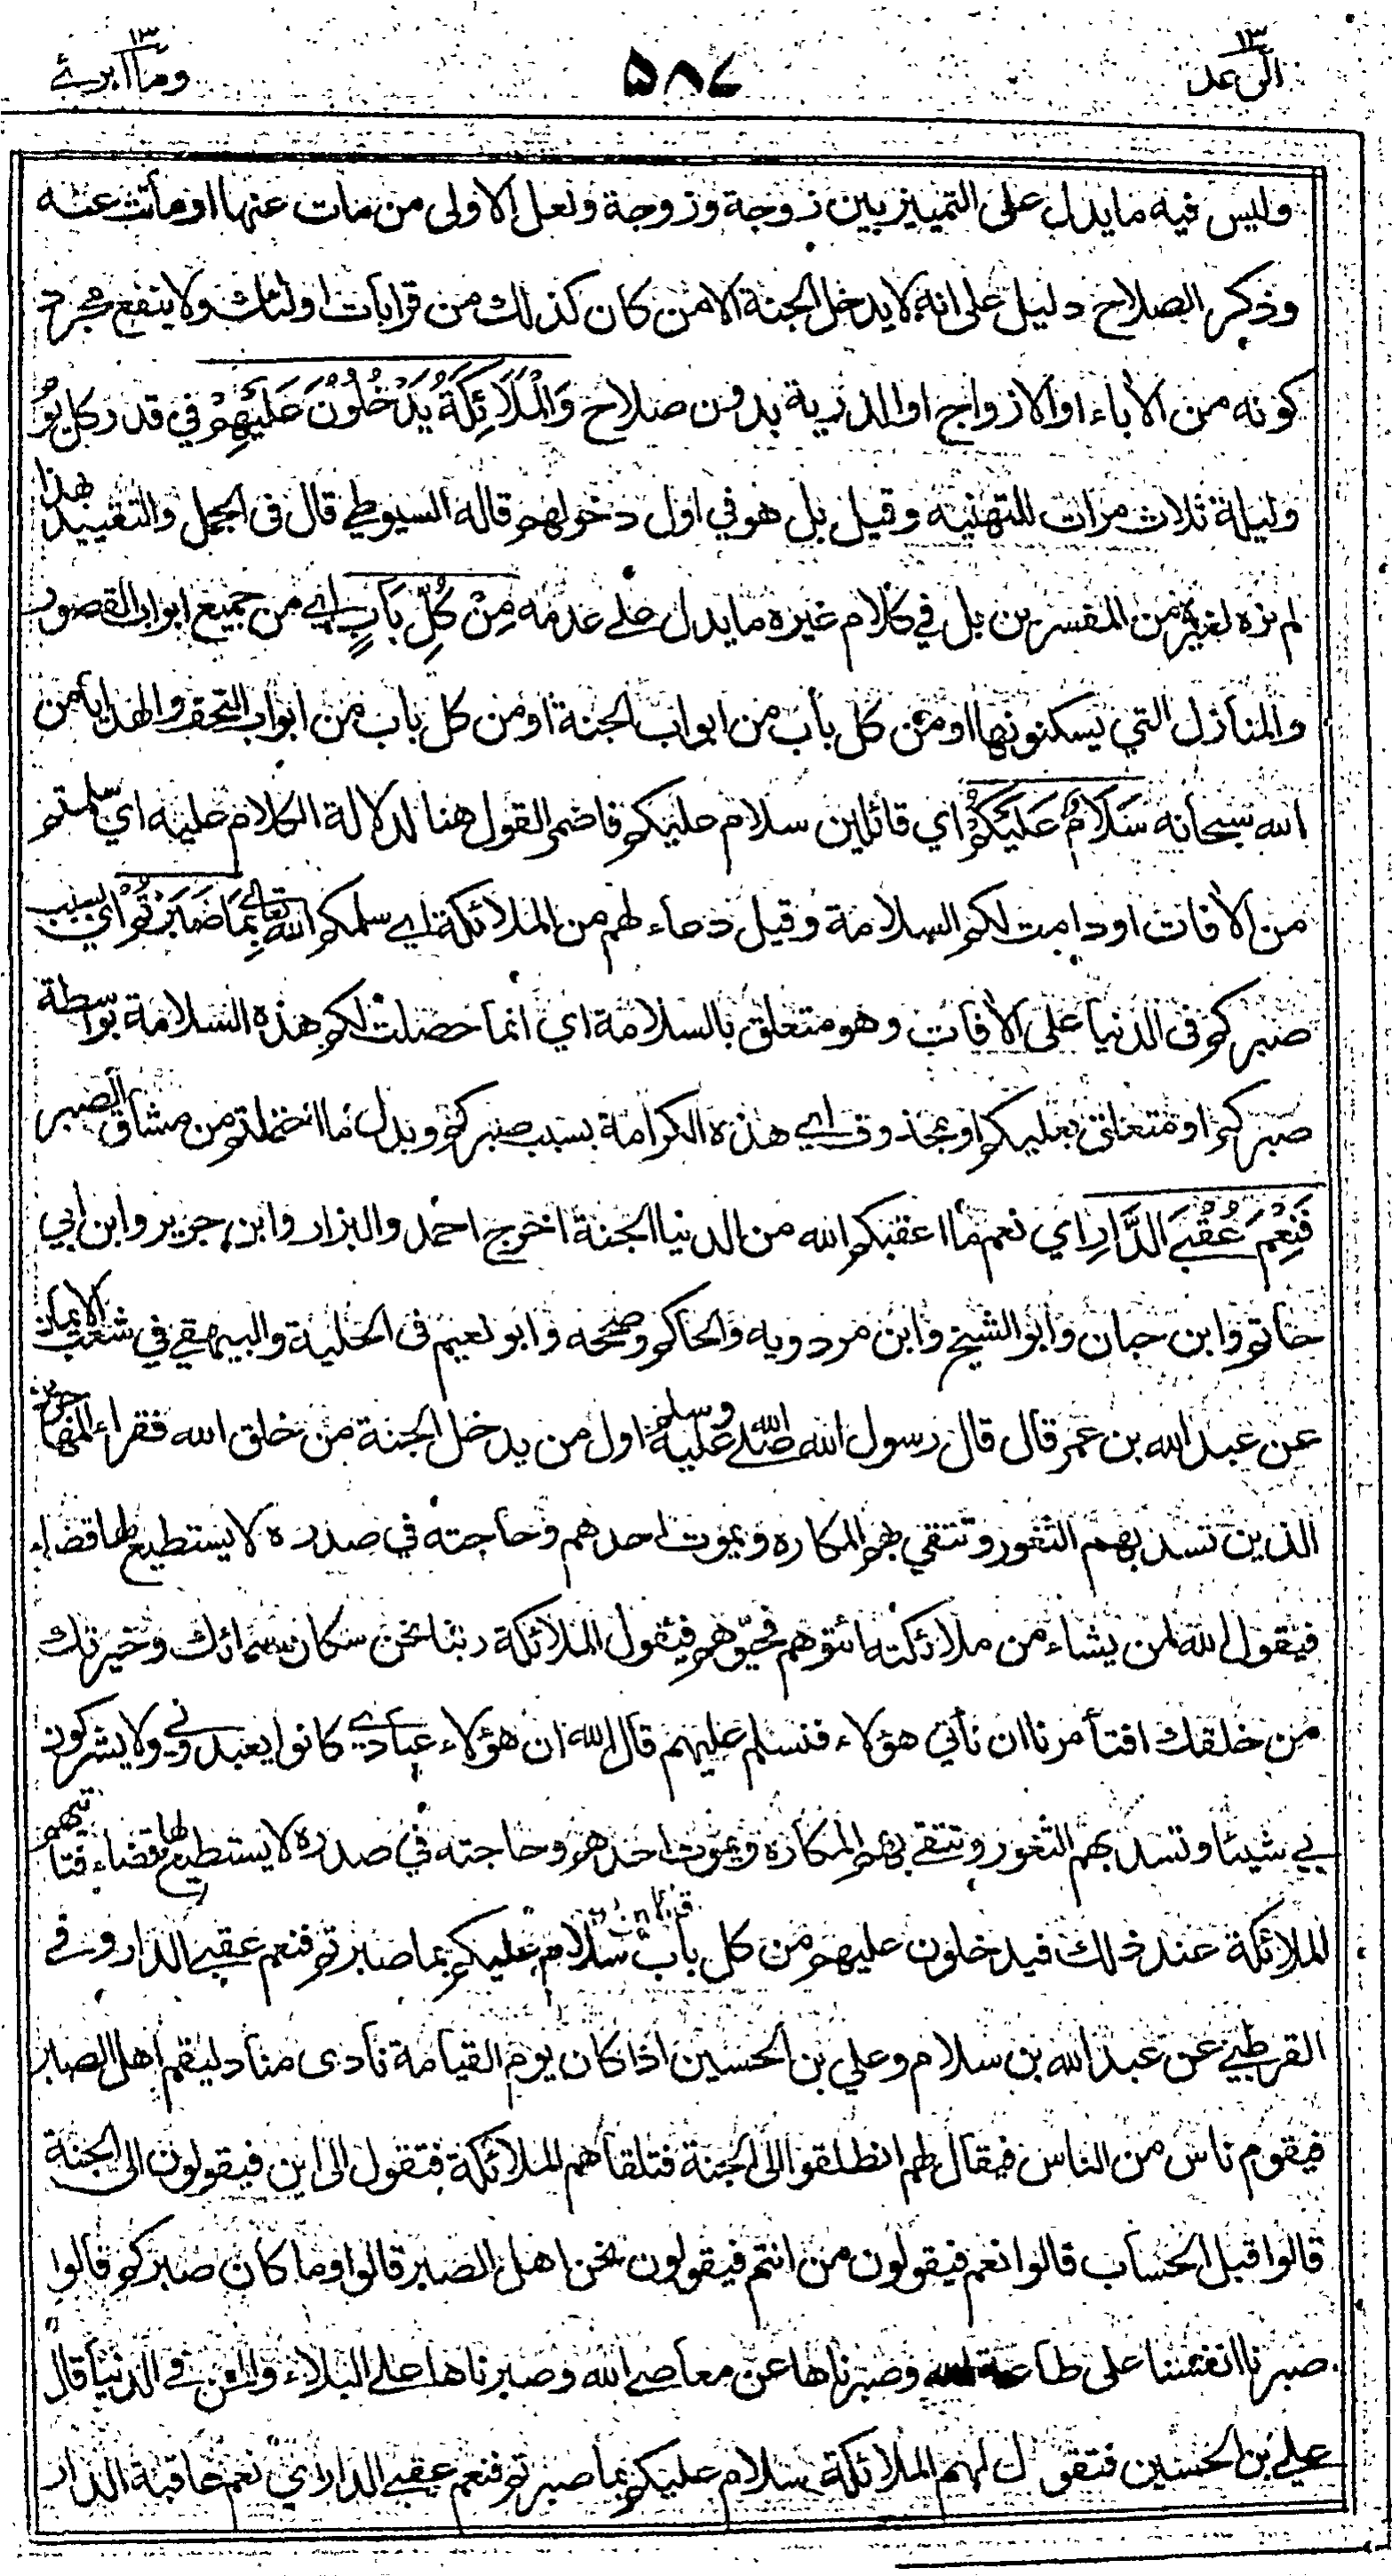 الرعد ١٣
٥٨٧
وما ابرئ ١٣
وليس فيه ما يدل على التمييز بين زوجة وزوجة ولعل الاولى من مات عنها او ماتت عنه
وذكر الصلاح دليل على انه لا يدخل الجنة الا من كان كذلك من قرابات اولئك ولا ينفع مجرد
كونه من الأباء او الازواج او الذرية بدون صلاح وَالْمَلَائِكَةُ يَدْخُلُوْنَ عَلَيْهِمْ في قدر كل يوم
وليلة ثلاث مرات للتهنية وقيل بل هو في اول دخولهم قاله السيوطي قال في الجمل والتقييد هذا
لم نره لغيره من المفسرين بل في كلام غيره ما يدل على عدمه مِنْ كُلِّ بَابٍ اي من جميع ابواب القصور
والمنازل التي يسكنونها او من كل باب من ابواب الجنة او من كل باب من ابواب التحف والهدايا من
الله سبحانه سَلَامٌ عَلَيْكُمْ اي قائلين سلام عليكم فاضمر القول هنا لدلالة الكلام عليه اي سلمتم
من الأفات او دامت لكم السلامة وقيل دعاء لهم من الملائكة اي سلمكم الله تعالى بِمَا صَبَرْتُمْ اي بسبب
صبركم في الدنيا على الأفات وهو متعلق بالسلامة اي انما حصلت لكم هذه السلامة بواسطة
صبركم او متعلق بعليكم او بمحذوف اي هذه الكرامة بسبب صبركم وبدل ما احتملتم من مشاق الصبر
فَنِعْمَ عُقْبَى الدَّارِ اي نعم ما اعقبكم الله من الدنيا الجنة اخرج احمد والبزار وابن جرير وابن ابي
حاتم وابن حبان وابو الشيخ وابن مردويه والحاكم وصححه وابو نعيم في الحلية والبيهقي في شعب الايمان
عن عبد الله بن عمر قال قال رسول الله صلى الله عليه وسلم اول من يدخل الجنة من خلق الله فقراء المهاجرين
الذين تسد بهم الثغور وتتقي بهم المكاره ويموت احدهم وحاجته في صدره لا يستطيع لها قضاء
فيقول الله لمن يشاء من ملائكته ائتوهم فحيّوهم فيقول الملائكة ربنا نحن سكان سمائك وخيرتك
من خلقك افتأمرنا ان نأتي هؤلاء فنسلم عليهم قال الله ان هؤلاء عبادي كانوا يعبدوني ولا يشركون
بي شيئا وتسد بهم الثغور وتتقى بهم المكاره ويموت احدهم وحاجته في صدره لا يستطيع لها قضاء فتأتيهم
الملائكة عند ذلك فيدخلون عليهم من كل باب سلام عليكم بما صبرتم فنعم عقبى الدار وفي
القرطبي عن عبد الله بن سلام وعلي بن الحسين اذا كان يوم القيامة نادى مناد ليقم اهل الصبر
فيقوم ناس من الناس فيقال لهم انطلقوا الى الجنة فتلقاهم الملائكة فتقول الى اين فيقولون الى الجنة
قالوا قبل الحساب قالوا نعم فيقولون من انتم فيقولون نحن اهل الصبر قالوا وما كان صبركم قالوا
صبرنا انفسنا على طاعة الله وصبرناها عن معاصي الله وصبرناها على البلاء والمحن في الدنيا قال
علي بن الحسين فتقول لهم الملائكة سلام عليكم بما صبرتم فنعم عقبى الدار اي نعم عاقبة الدار